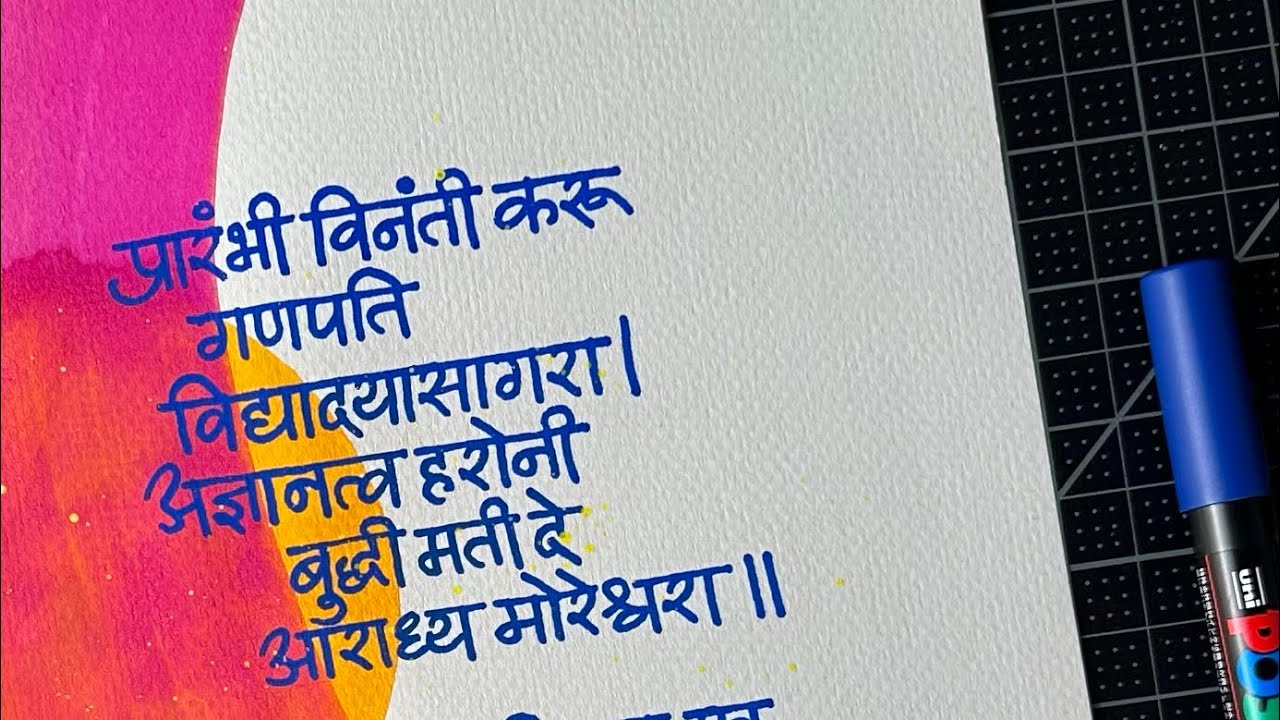 प्रारंभी विनंती करू
गणपति
विद्यादयासागरा।
अज्ञानत्व हरोनी
बुद्धी मती दे
आराध्य मोरेश्वरा॥
uni